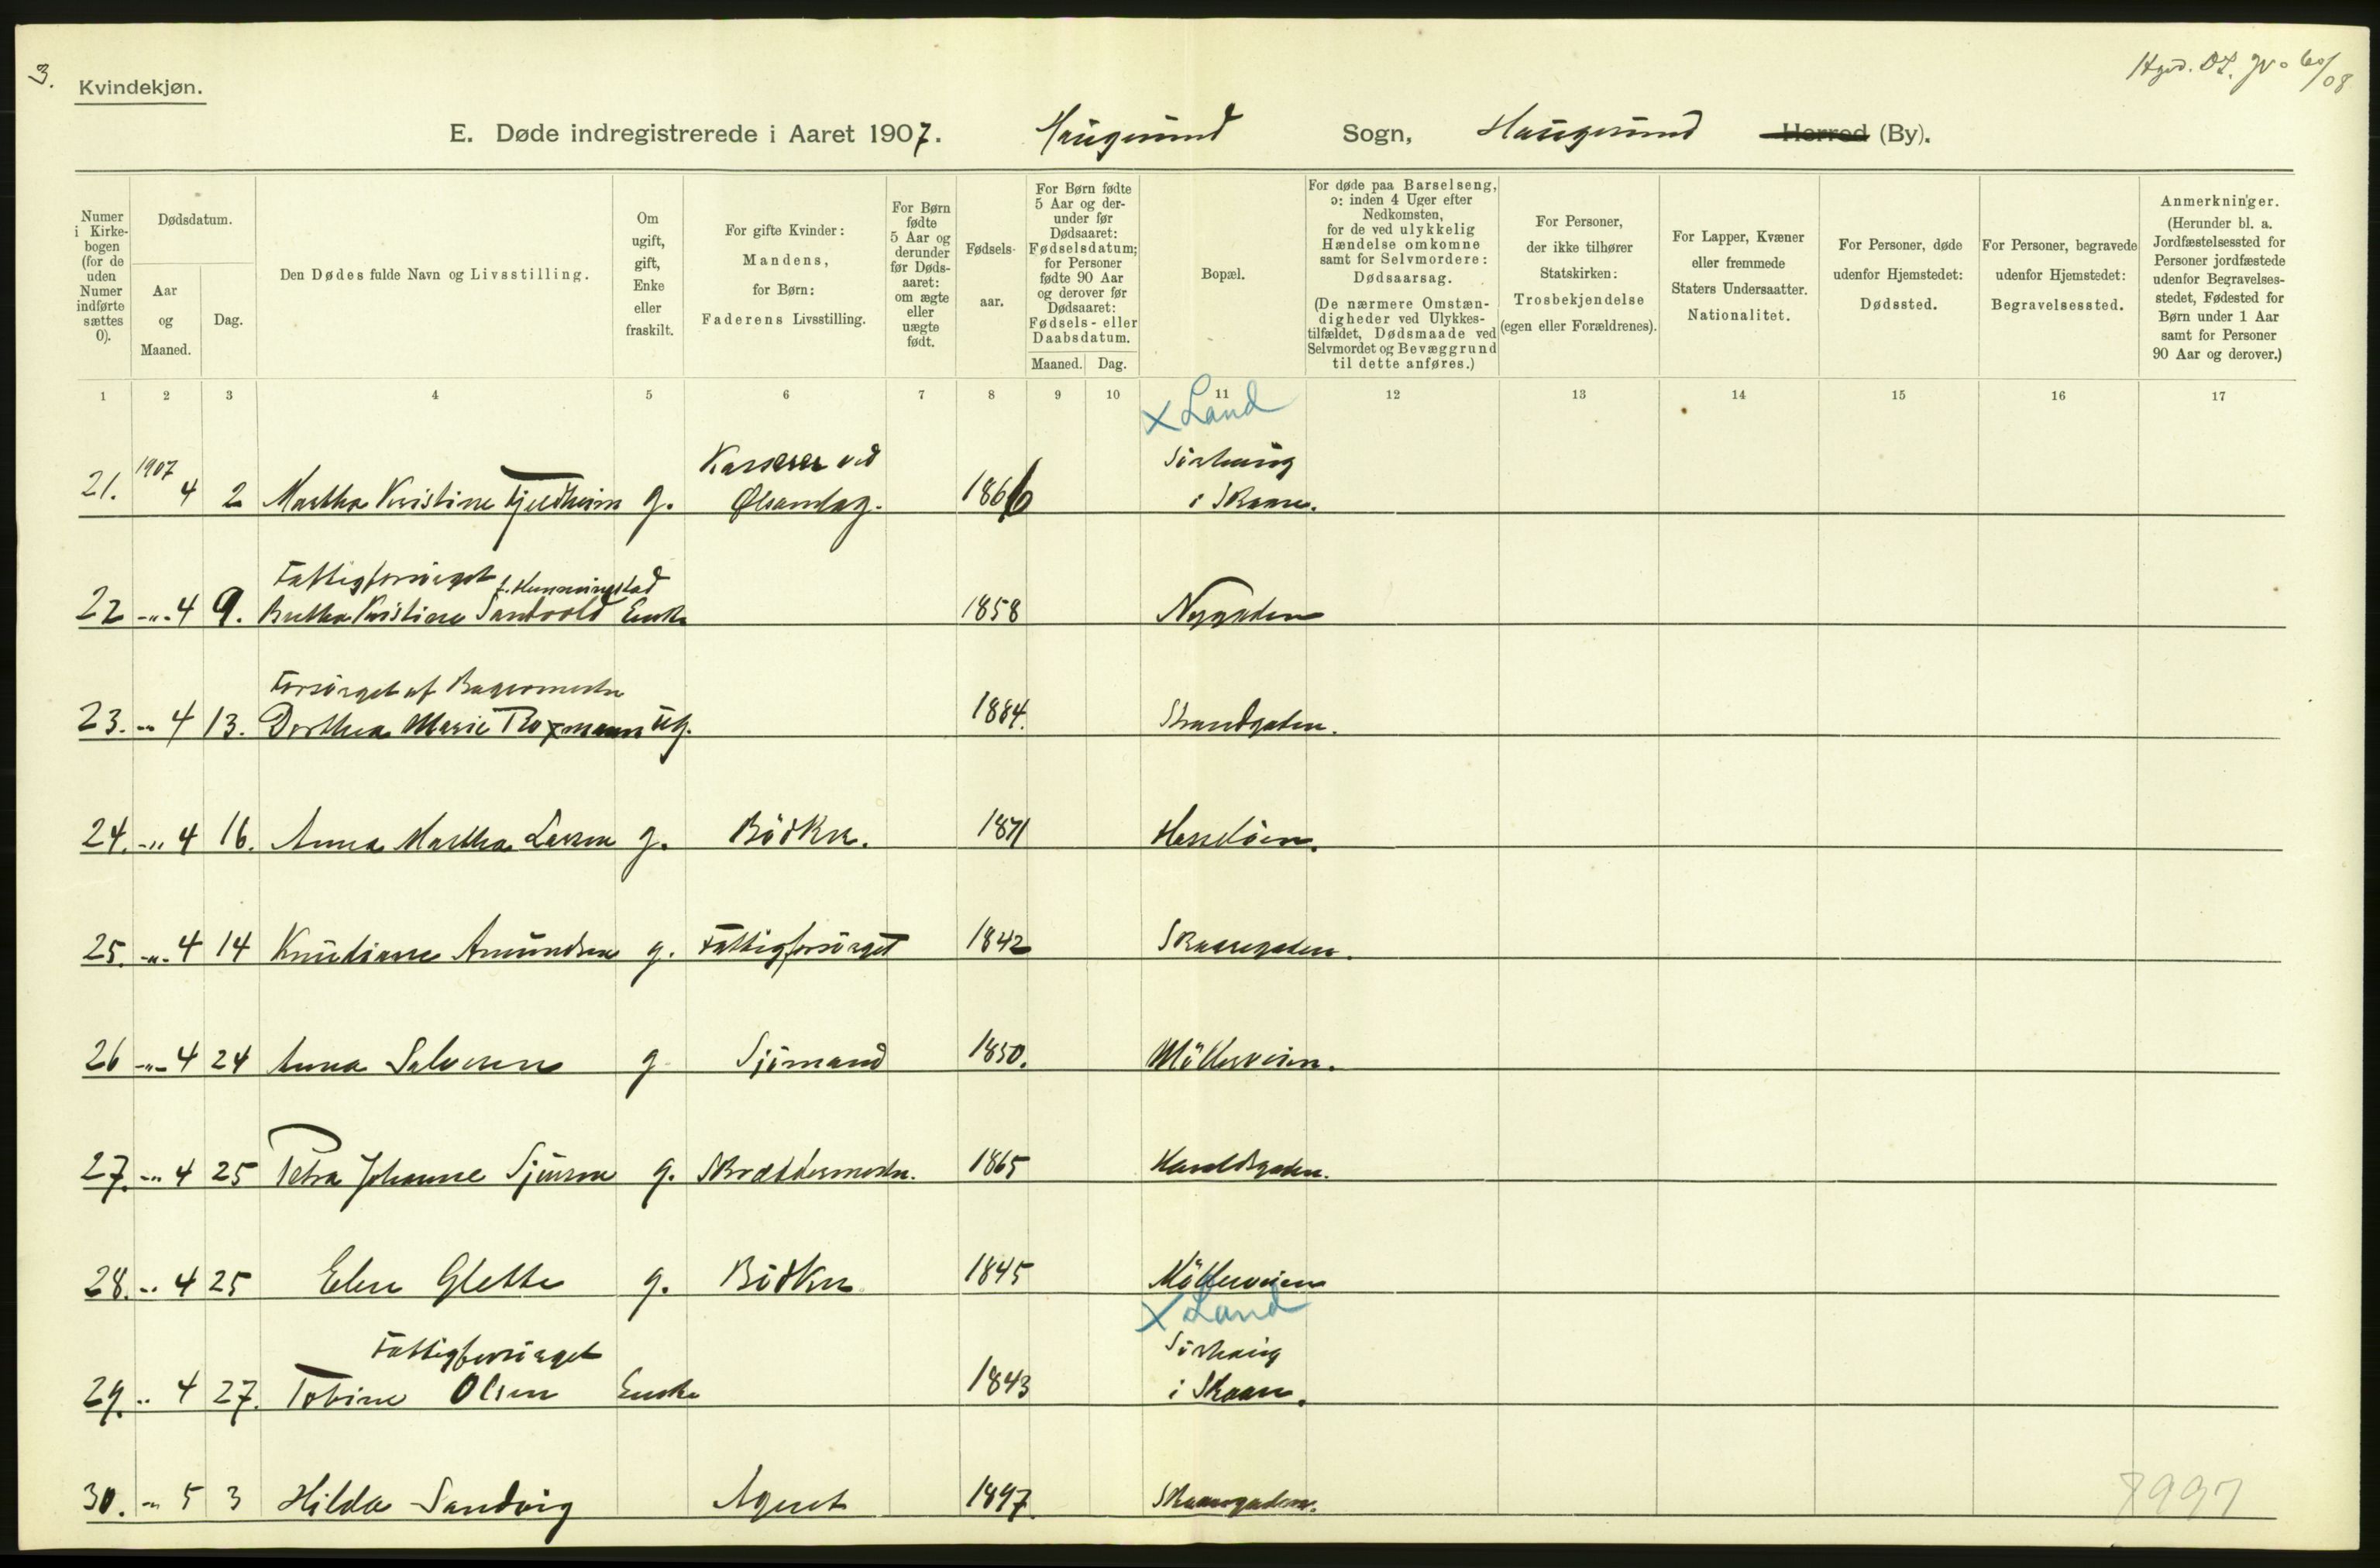 3.
Kvindekjøn.
E. Døde indregistrerede i Aaret 1907. Haugesund Sogn, Haugesund Herred (By).
Numer i Kirkebogen (for de uden Numer indførte sættes 0).
Dødsdatum.
Aar og Maaned.
Dag.
Den Dødes fulde Navn og Livsstilling.
Om ugift, gift, Enke eller fraskilt.
For gifte Kvinder: Mandens, for Børn: Faderens Livsstilling.
For Børn fødte 5 Aar og derunder før Dødsaaret: om ægte eller uægte født.
Fødselsaar.
For Børn fødte 5 Aar og derunder før Dødsaaret: Fødselsdatum; for Personer fødte 90 Aar og derover før Dødsaaret: Fødsels- eller Daabsdatum.
Maaned. Dag.
Bopæl.
For døde paa Barselseng, ɔ: inden 4 Uger efter Nedkomsten, for de ved ulykkelig Hændelse omkomne samt for Selvmordere: Dødsaarsag.
(De nærmere Omstændigheder ved Ulykkestilfældet, Dødsmaade ved Selvmordet og Bevæggrund til dette anføres.)
For Personer, der ikke tilhører Statskirken: Trosbekjendelse (egen eller Forældrenes).
For Lapper, Kvæner eller fremmede Staters Undersaatter. Nationalitet.
For Personer, døde udenfor Hjemstedet: Dødssted.
For Personer, begravede udenfor Hjemstedet: Begravelsessted.
Anmerkninger.
(Herunder bl. a. Jordfæstelsessted for Personer jordfæstede udenfor Begravelsesstedet, Fødested for Børn under 1 Aar samt for Personer 90 Aar og derover.)
1 2 3 4 5 6 7 8 9 10 11 12 13 14 15 16 17
x Land
Kasserer ved Sörhaug
21. 1907 4 2 Martha Kristine Fjeldheim g. Ølsamlag. 1866 i Skaare.
Fattigforsörget
22 -"- 4 9. Kristine Sandvold Enke 1858 Nygaden
Forsörget af Bagermester
23. -"- 4 13. Dorthea Marie ug. 1884. Strandgaden.
24. -"- 4 16. Anna Martha Larsen g. Bödker. 1871 Hasselöen.
25. -"- 4 14 Knudiane Amundsen g. Fattigforsörget 1842 Skaaregaden.
26 -"- 4 24 Anna Salvesen g Sjömand 1850. Möllerveien.
27. -"- 4 25 Petra Johanne Sjursen g. Skræddermester. 1865 Haraldsgaden.
28. -"- 4 25 Elen Glette g. Bödker 1845 Möllerveien
x Land
Fattigforsörget Sörhaug
29. -"- 4 27. Tobine Olsen Enke 1843 i Skaare.
30. -"- 5 3 Hilda Sandvig Agent 1897. Skaaregaden.